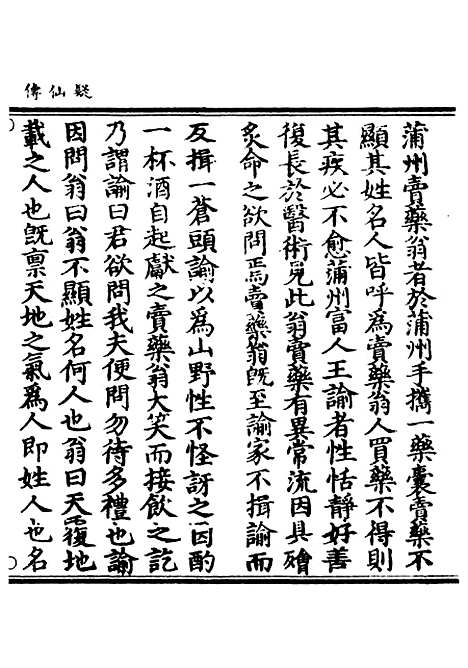 疑仙傳
蒲州賣藥翁者於蒲州手攜一藥囊賣藥不
顯其姓名人皆呼為賣藥翁人買藥不得則
其疾必不愈蒲州富人王諭者性恬靜好善
復長於醫術見此翁賣藥有異常流因具膾
炙命之欲問焉賣藥翁既至諭家不揖諭而
反揖一蒼頭諭以為山野性不怪訝之因酌
一杯酒自起獻之賣藥翁大笑而接飲之訖
乃謂諭曰君欲問我夫便問勿待多禮也諭
因問翁曰翁不顯姓名何人也翁曰天覆地
載之人也既稟天地之氣為人即姓人也名